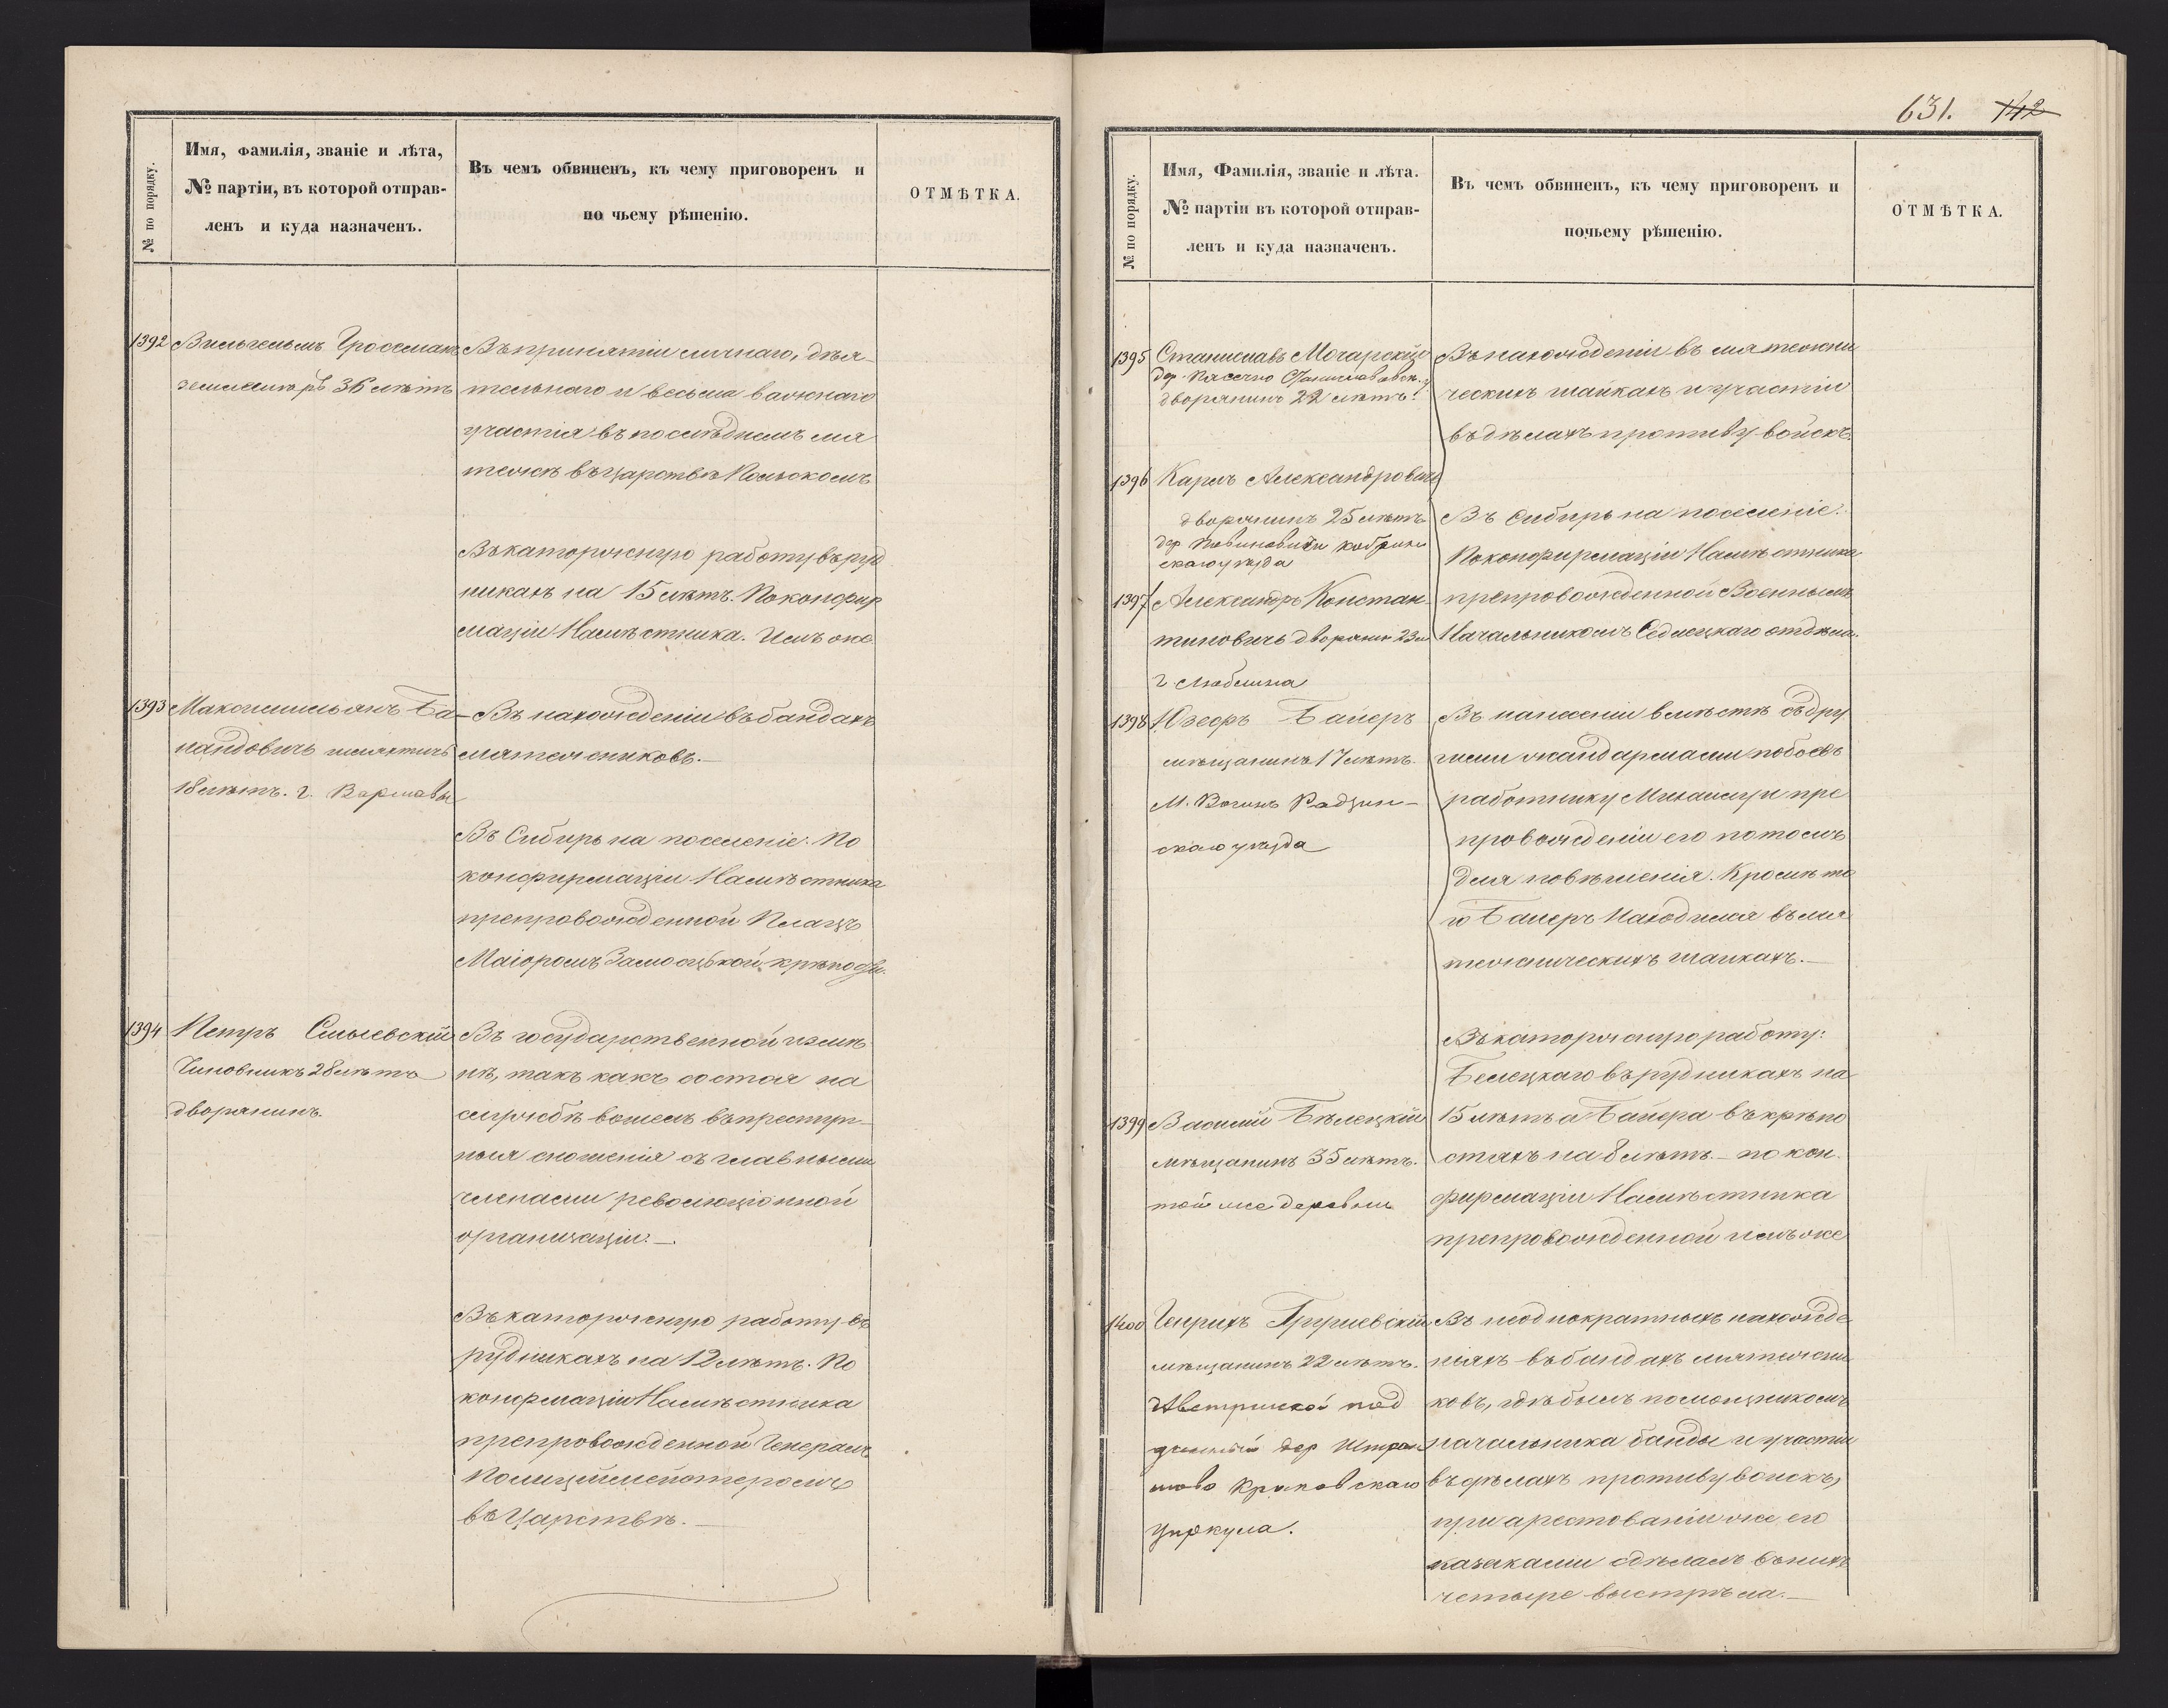 № по порядку.
Имя, Фамилія, званіе и лѣта,
№ партіи, въ которой отправ-
ленъ и куда назначенъ.
Въ чемъ обвиненъ, къ чему приговоренъ и
по чьему рѣшенію.
ОТМѢТКА.
1392
Вильгельмъ Гроссманъ
землемѣръ 36 лѣтъ
Въ принятіи личнаго, дѣя-
тельнаго и весьма важнаго
участія въ послѣднемъ мя
тежѣ въ Царствѣ Польскомъ
Въ каторжную работу въ руд
никахъ на 15 лѣтъ. По конфир
маціи Намѣстника. Имъ же
1393
Максимильянъ Ба-
нандовичъ шляхтичъ
18 лѣтъ. г. Варшавы
Въ нахожденіи въ бандахъ
мятежниковъ.—
Въ Сибирь на поселеніе. По
конфирмаціи Намѣстника
препровожденной Плацъ
Маіоромъ Замосцской крѣпости.
1394
Петръ Смыевскій
Чиновникъ 28 лѣтъ
дворянинъ.
Въ государственной измѣ
нѣ, такъ какъ состоя на
службѣ вошелъ въ преступ-
ныя сношенія съ главными
членами революціонной
организаціи.—
Въ каторжную работу въ
рудникахъ на 12 лѣтъ. По
конфмаціи Намѣстника
препровожденной Генералъ
Полиціймейстеромъ
въ Царствѣ.—
631. 142
№ по порядку.
Имя, Фамилія, званіе и лѣта.
№ партіи въ которой отправ-
ленъ и куда назначенъ.
Въ чемъ обвиненъ, къ чему приговоренъ и
почьему рѣшенію.
ОТМѢТКА.
1395
Станиславъ Мочарскій
дер. Пясечно Станиславовск. у
дворянинъ 22 лѣтъ.
Въ нахожденіи въ мятежни
ческихъ шайкахъ и участіи
въ дѣлахъ противу войскъ.
1396
Карлъ Александровичъ
дворянинъ 25 лѣтъ
дер кобрин
скаго уѣзда
Въ Сибирь на поселеніе.
По конфирмаціи Намѣстника
1397
Александръ Констан-
тиновичъ дворянин 23 л
г. Люблина
препровожденной Военнымъ
Начальникомъ Седлецкаго отдѣла.
1398
Юзефъ Байеръ
мѣщанинъ 17 лѣтъ.
М. Вогинь Радзин-
скаго уѣзда
Въ нанесеніи вмѣстѣ съ дру
гими жандармами побоевъ
работнику и пре
провожденіи его потомъ
для повѣшенія. Кромѣ то
го Байеръ находился въ мя
тежническихъ шайкахъ.—
Въ каторжную работу:
Белецкаго въ рудникахъ на
1399
Василій Бѣлецкій
мѣщанинъ 35 лѣтъ.
той же деревни
15 лѣтъ а Байера въ крѣпо
стяхъ на 8 лѣтъ.— по кон
фирмаціи Намѣстника
препровожденной имъ же
1400
Генрихъ Гргриевскій
мѣщанинъ 22 лѣтъ.
Австрійскій под
данный дер
Краковскаго
Циркула.
Въ неоднократныхъ нахожде
ніяхъ въ бандахъ мятежни
ковъ, гдѣ былъ помощникомъ
начальника банды и участіи
въ дѣлахъ противу войскъ,
при арестованіи же его
казаками сдѣлалъ въ нихъ
четыре выстрѣла.—